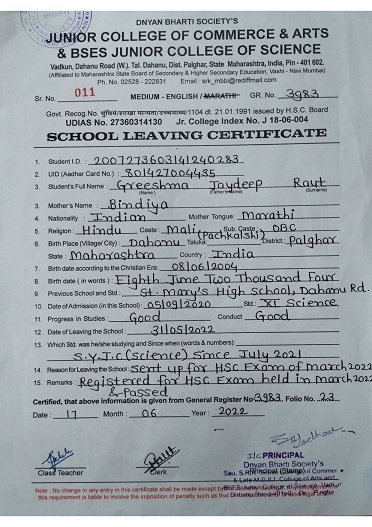 DNYAN BHARTI SOCIETY'S
JUNIOR COLLEGE OF COMMERCE & ARTS
& BSES JUNIOR COLLEGE OF SCIENCE
Vadkun, Dahanu Road (W.), Tal. Dahanu, Dist. Palghar, State Maharashtra, India, Pin - 401 602.
(Affiliated to Maharashtra State Board of Secondary & Higher Secondary Education, Vashi - Navi Mumbai)
Ph. No. 02528 - 222831 Email : srk_mbbi@rediffmail.com
Sr. No. 011 MEDIUM - ENGLISH / MARATHI GR. No. 3983
Govt. Recog.No. /1104 dt. 21.01.1991 issued by H.S.C. Board
UDIAS No. 27360314130 Jr. College Index No. J 18-06-004
SCHOOL LEAVING CERTIFICATE
1. Student I.D. : 2007273603141240283
2. UID (Aadhar Card No.) : 801427004435
3. Student's Full Name : Greeshma Jaydeep Raut
(Name) (Father's Name) (Surname)
3. Mother's Name : Bindiya
4. Nationality : Indian Mother Tongue: Marathi
5. Religion : Hindu Caste : Mali Sub. Caste : OBC
(Pachkalshi)
6. Birth Place (Village/ City) : Dahanu Taluka: District : Palghar
State : Maharashtra Country : India
7. Birth date according to the Christian Era: 08/06/2004
8. Birth date ( in words ) : Eighth June Two Thousand Four
9. Previous School and Std.: St. Mary's High School, Dahanu Rd.
10. Date of Admission (in this School) : 05/09/2020 Std.: XI Science
11. Progress in Studies : Good Conduct Good
12. Date of Leaving the School : 31/05/2022
13. Which Std. was he/she studying and Since when (words & numbers):
S.Y.J.C (science) Since July 2021
14. Reason for Leaving the School: sent up for HSC Exam of march 2022
15. Remarks Registered for HSC Exam held in march 2022
& Passed
Certified, that above information is given from General Register No 3983. Folio No. 23
Date : 17 Month : 06 Year : 2022
Class Teacher Clerk I/C PRINCIPAL
Dnyan Bharti Society's
Principal (Stamp)
Note : No change in any entry in this certificate shall be made except by
this requirement is liable to involve the imposition of penalty such as that